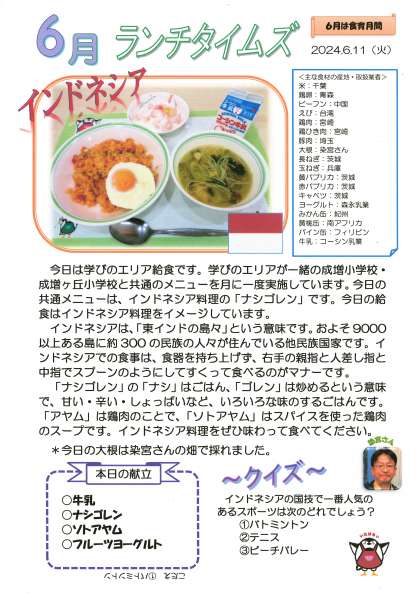 6月 ランチタイムズ
6月は食育月間
2024.6.11（火）
インドネシア
<主な食材の産地・取扱業者>
米：千葉
鶏卵：青森
ビーフン：中国
えび：台湾
鶏肉：宮崎
鶏ひき肉：宮崎
豚肉：埼玉
大根：染宮さん
長ねぎ：茨城
玉ねぎ：兵庫
黄パプリカ：茨城
赤パプリカ：茨城
キャベツ：茨城
ヨーグルト：森永乳業
みかん缶：紀州
黄桃缶：南アフリカ
パイン缶：フィリピン
牛乳：コーシン乳業
今日は学びのエリア給食です。学びのエリアが一緒の成増小学校・
成増ヶ丘小学校と共通のメニューを月に一度実施しています。今日の
共通メニューは、インドネシア料理の「ナシゴレン」です。今日の給
食はインドネシア料理をイメージしています。
インドネシアは、「東インドの島々」という意味です。およそ9000
以上ある島に約300の民族の人々が住んでいる他民族国家です。イ
ンドネシアでの食事は、食器を持ち上げず、右手の親指と人差し指と
中指でスプーンのようにしてすくって食べるのがマナーです。
「ナシゴレン」の「ナシ」はごはん、「ゴレン」は炒めるという意味
で、甘い・辛い・しょっぱいなど、いろいろな味のするごはんです。
「アヤム」は鶏肉のことで、「ソトアヤム」はスパイスを使った鶏肉
のスープです。インドネシア料理をぜひ味わって食べてください。
＊今日の大根は染宮さんの畑で採れました。
染宮さん
本日の献立
○牛乳
○ナシゴレン
○ソトアヤム
○フルーツヨーグルト
～クイズ～
インドネシアの国技で一番人気の
あるスポーツは次のどれでしょう？
①バトミントン
②テニス
③ビーチバレー
こたえ ①バトミントン